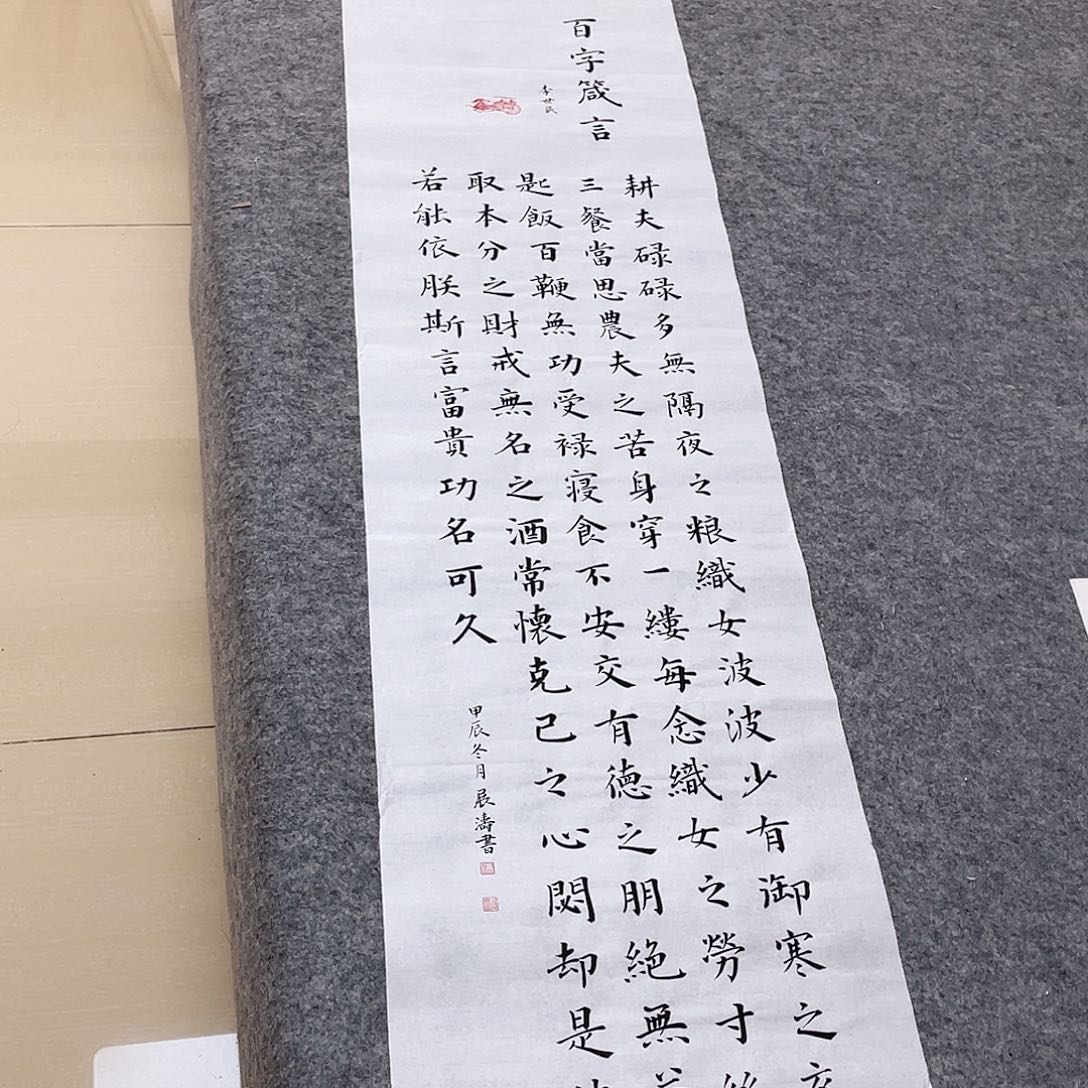 百字箴言
李世民
耕夫碌碌多無隔夜之粮織女波波少有御寒之
三餐當思農夫之苦身穿一縷每念織女之勞寸
匙飯百鞭無功受禄寝食不安交有德之朋絶無
取本分之財戒無名之酒常懷克己之心閟却是
若能依朕斯言富貴功名可久
甲辰冬月展濤書